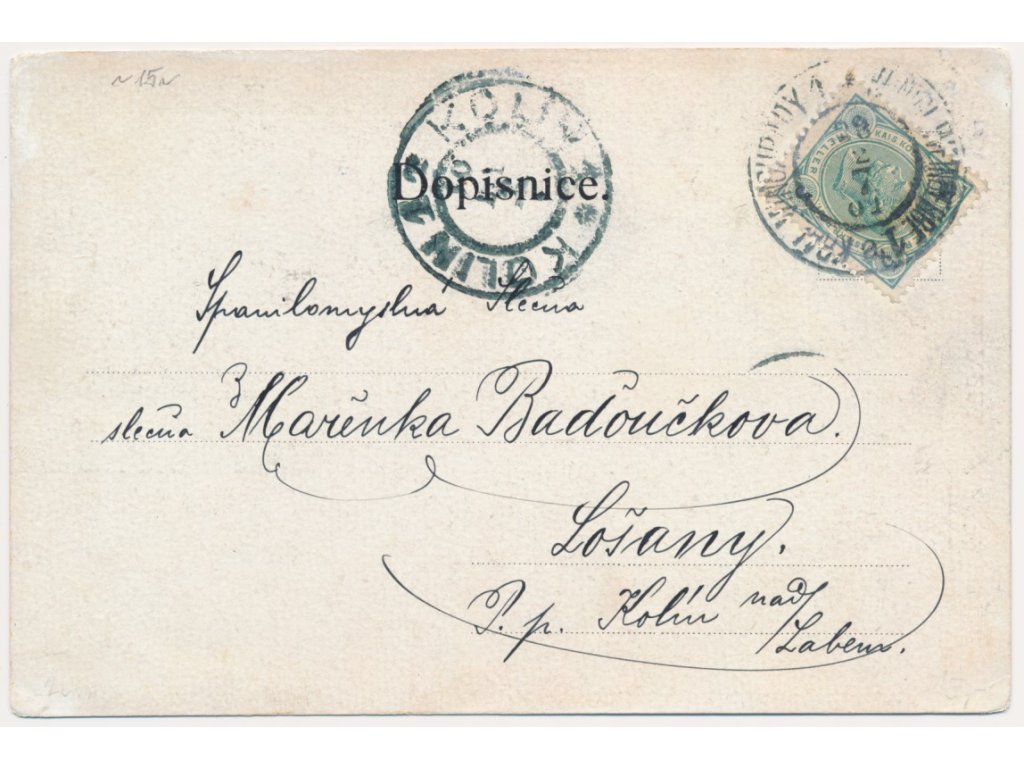 ~ 15 ~
KOLIN
KOLIN
Dopisnice.
HELLER
Spanilomyslná Slečna
slečna Mařenka Badoučkova.
Lošany.
P. p. Kolín nad/
Labem.